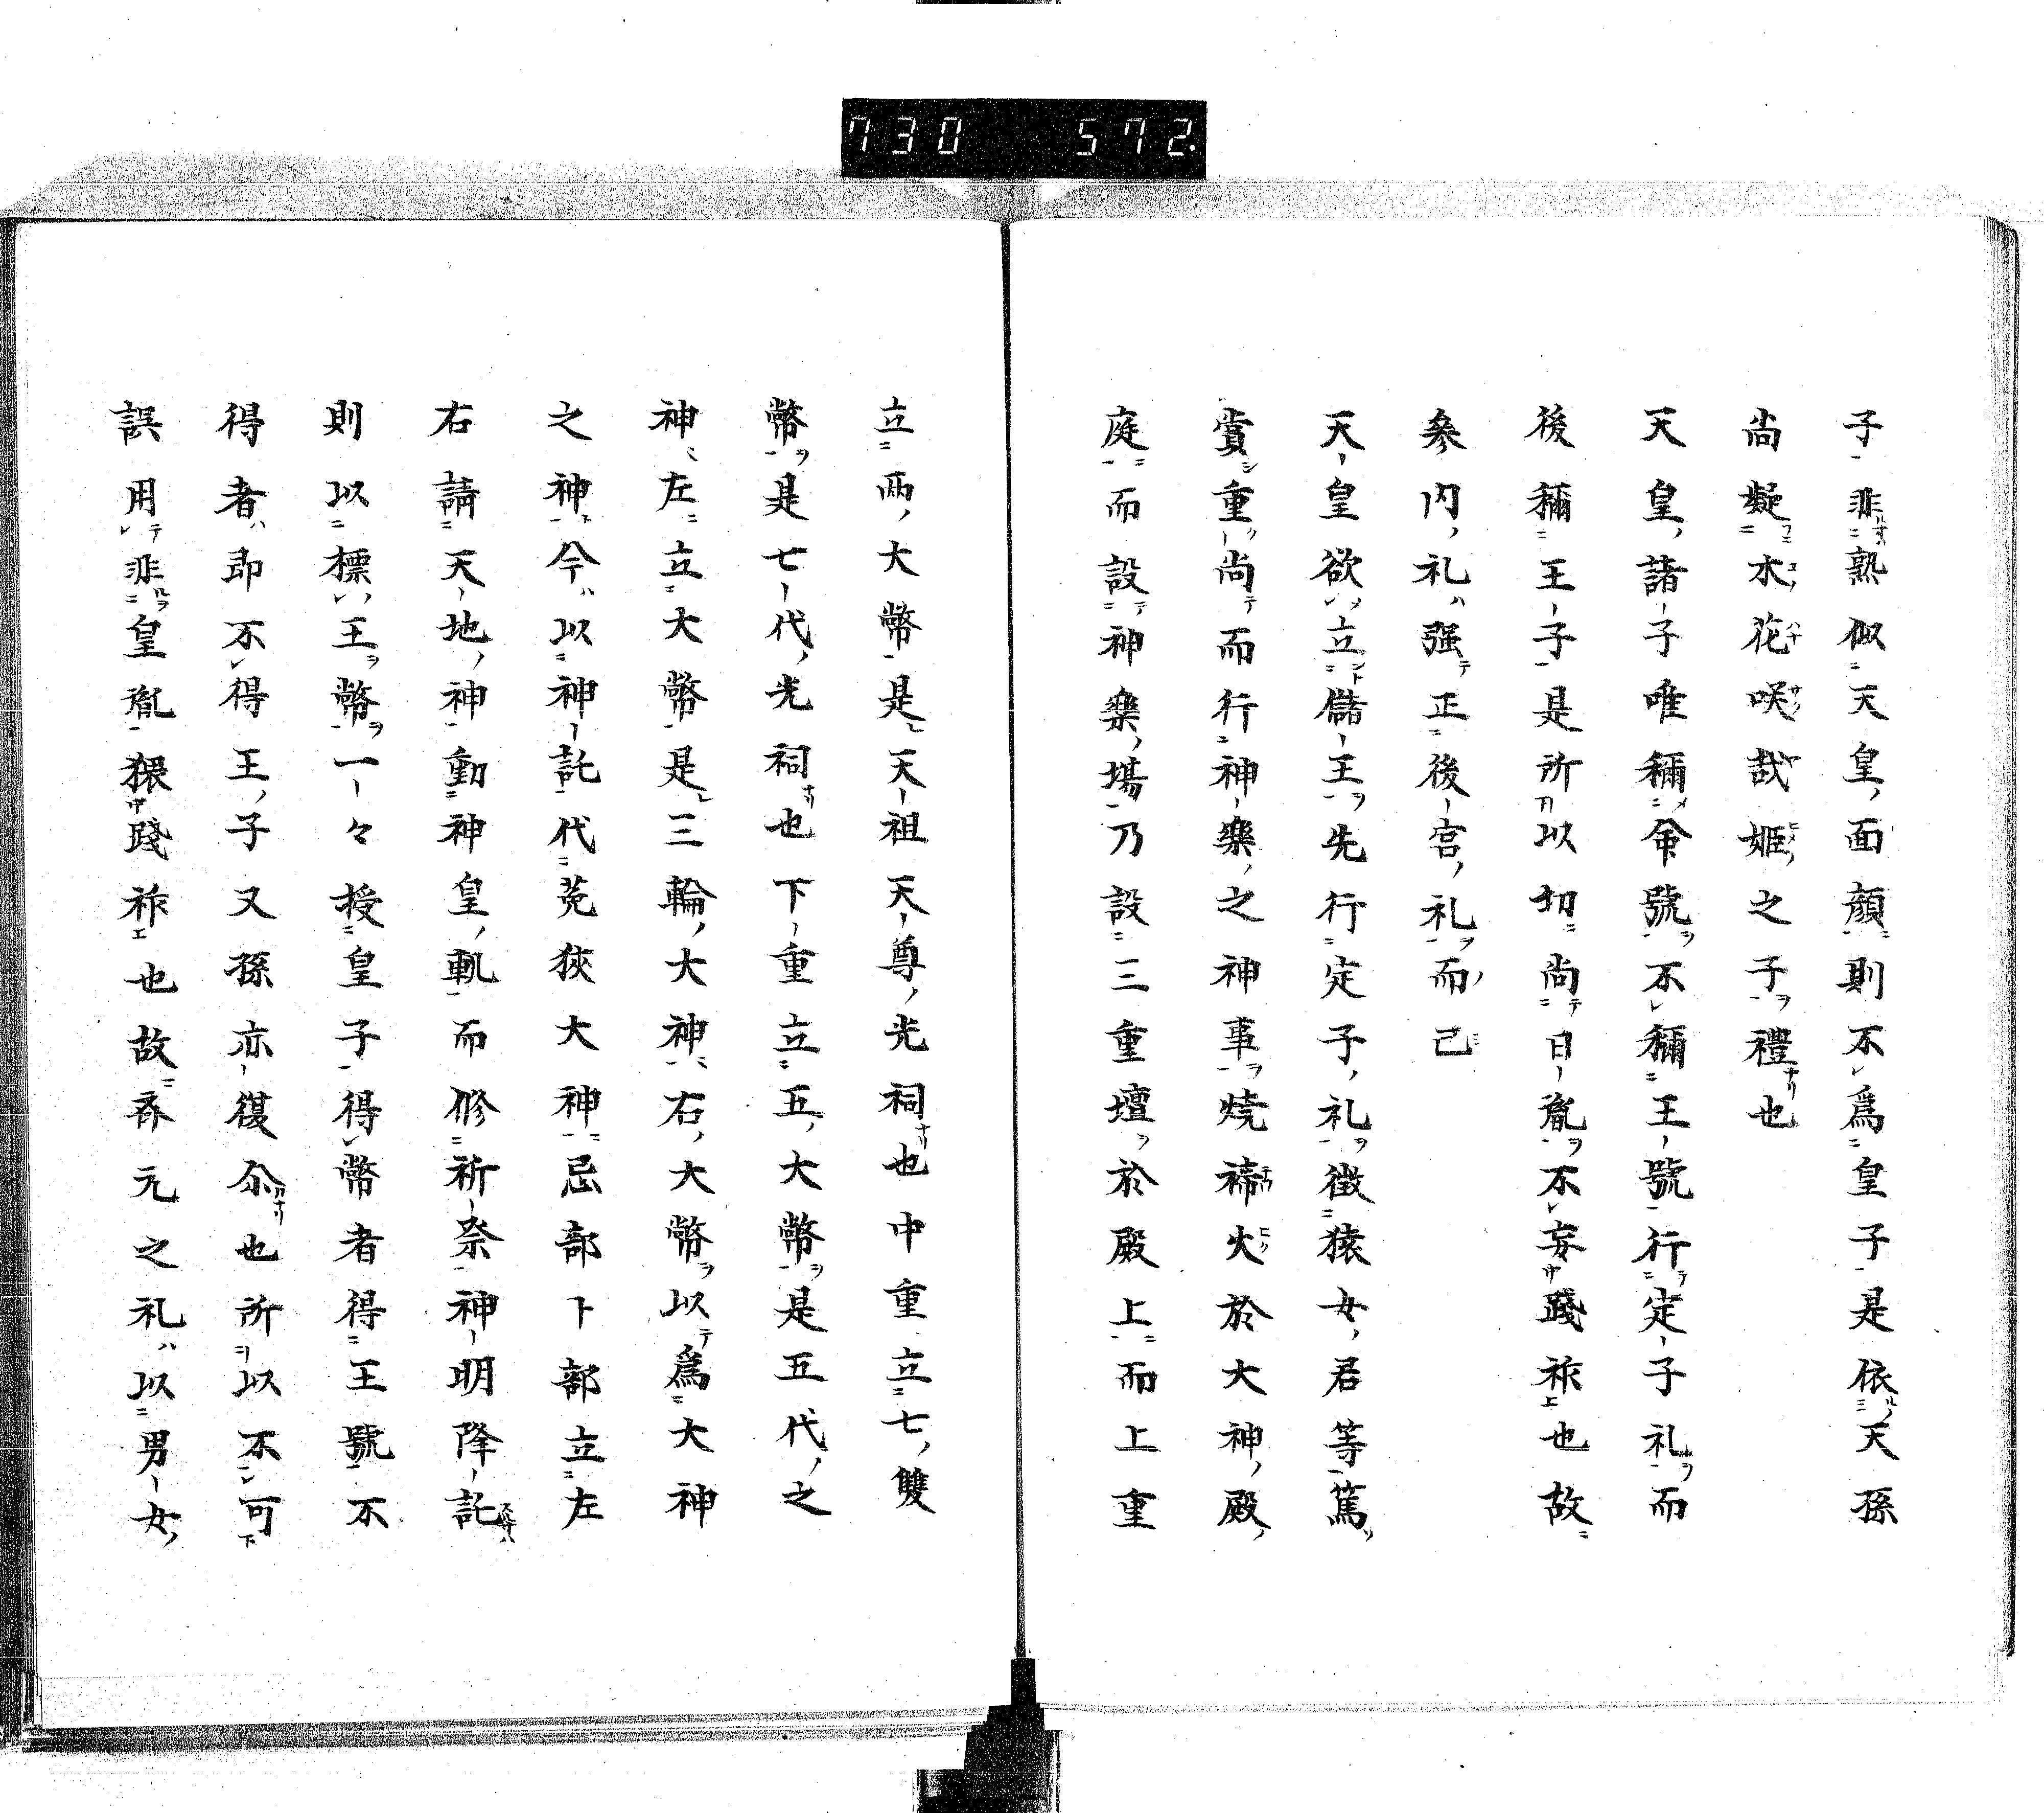 730 572.
子非熟似天皇面顔則不爲皇子是依天孫
尚疑木花咲哉姫之子禮也
天皇諸子唯稱命號不稱王號行定子礼而
後稱王子是所以切尚日胤不妄踐祚也故
參内礼强正後宮礼而已
天皇欲立儲王先行定子礼徴猿女君等篤
賞重尚而行神樂之神事焼禘火於大神殿
庭而設神樂場乃設三重壇於殿上而上重
立兩大幣是天祖天尊光祠也中重立七雙
幣是七代光祠也下重立五大幣是五代之
神左立大幣是三輪大神右大幣以爲大神
之神今以神託代菟狹大神忌部卜部立左
右請天地神動神皇軌而修祈祭神明降託
則以標王幣一々授皇子得幣者得王號不
得者即不得王子又孫亦復尒也所以不可
誤用非皇胤猥踐祚也故斎元之礼以男女